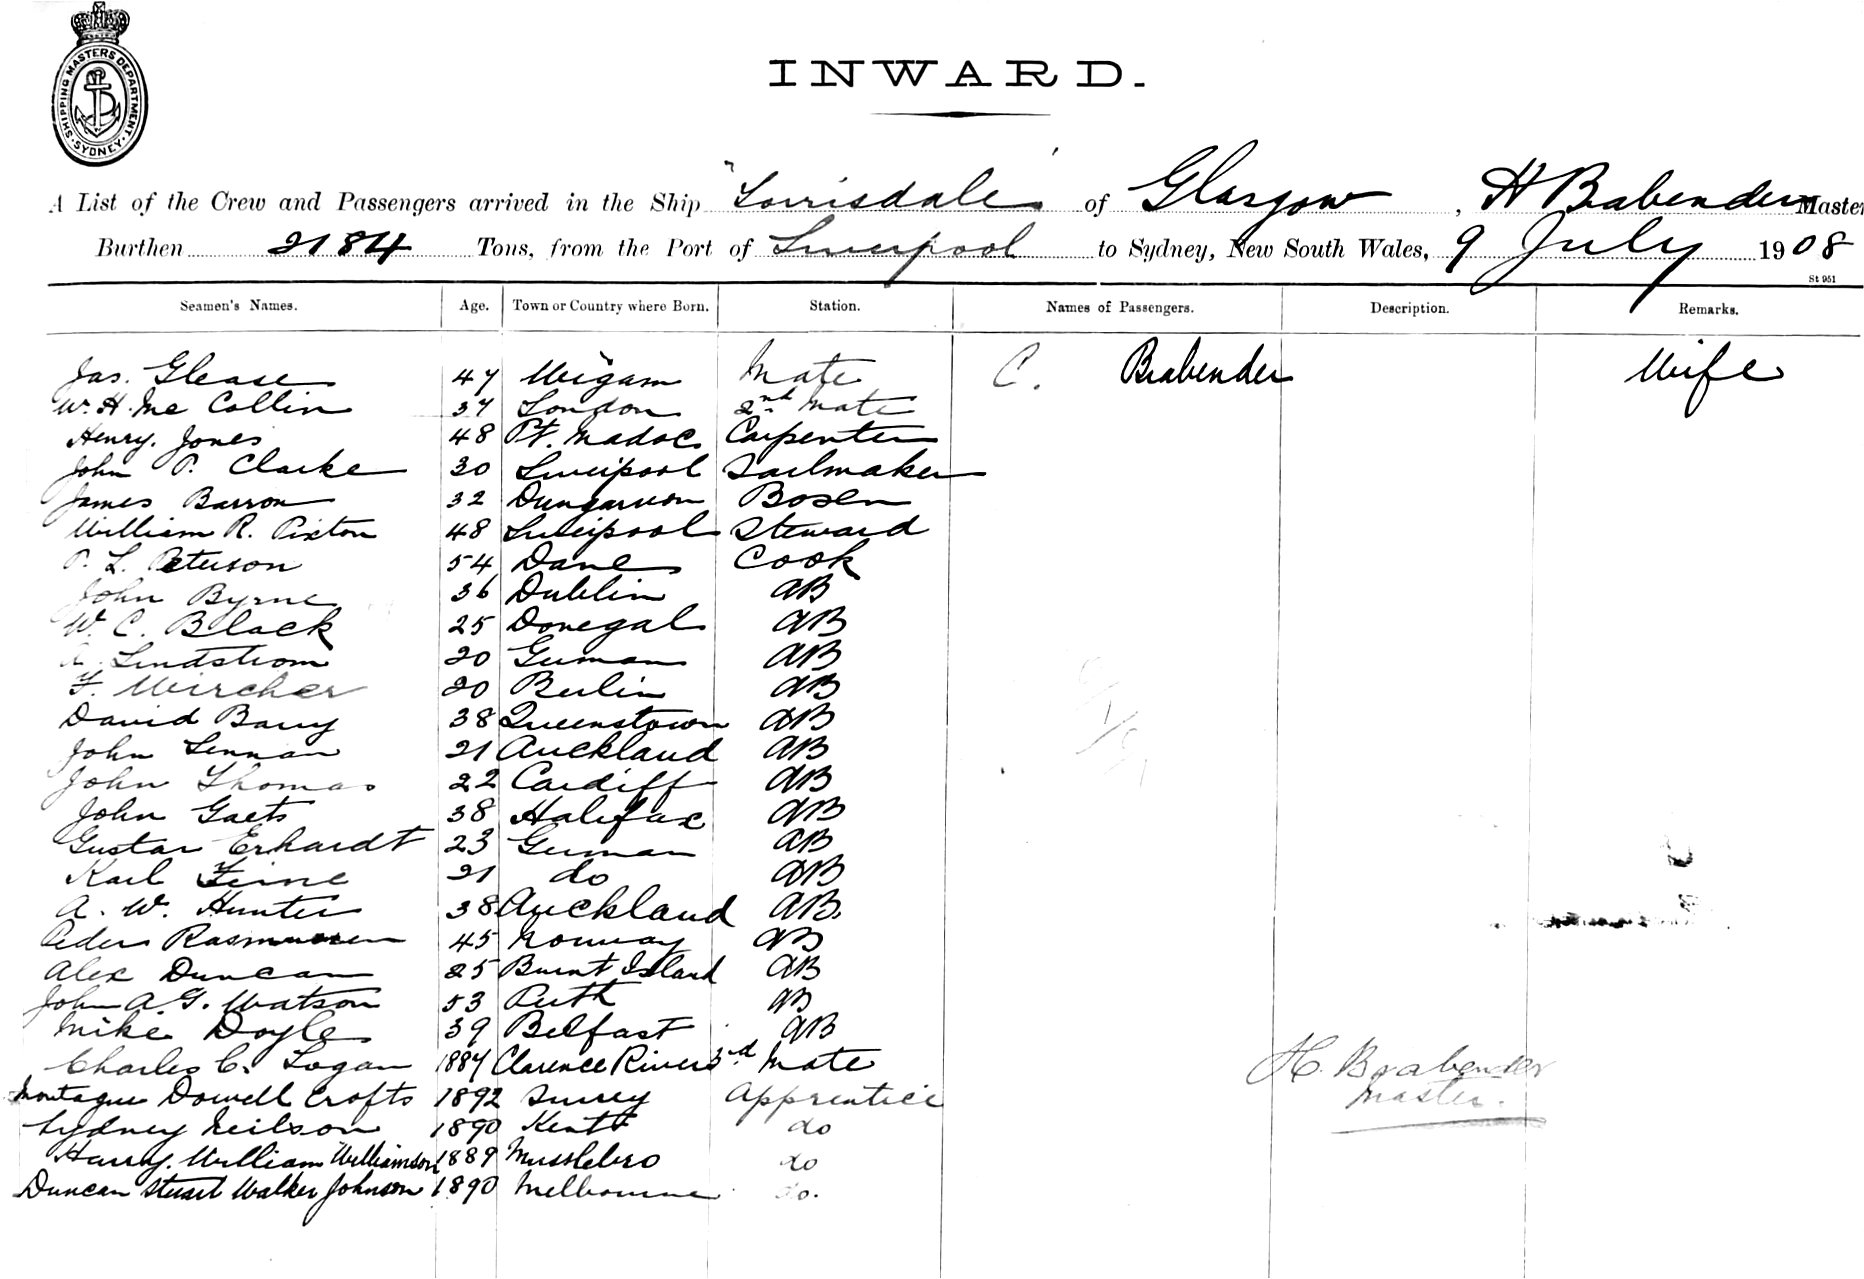 SHIPPING MASTERS DEPARTMENT · SYDNEY ·
INWARD.
A List of the Crew and Passengers arrived in the Ship "Lorrisdale" of Glasgow, H Brabender Master
Burthen 2184 Tons, from the Port of Liverpool to Sydney, New South Wales, 9 July 1908
St 951
Seamen's Names. Age. Town or Country where Born. Station. Names of Passengers. Description. Remarks.
Jas. Glease 47 Wigam Mate C. Brabender Wife
W. H. Mc Collin 37 London 2nd Mate
Henry. Jones 48 Pt. Madoc Carpenter
John P. Clarke 30 Liverpool Sailmaker
James Barron 32 Dungarvon Bosen
William R. Pixton 48 Liverpool Steward
P. L. Peterson 54 Dane Cook
John Byrne 36 Dublin AB
W. C. Black 25 Donegal AB
Lindstrom 20 German AB
F. Wircher 20 Berlin AB
David Barry 38 Queenstown AB
John Lennan 21 Auckland AB
John Thomas 22 Cardiff AB
John Gaets 38 Halifax AB
Gustav Erhardt 23 German AB
Karl Feine 21 do AB
A. W. Hunter 38 Auckland AB.
Peder Rasmussen 45 Norway AB
Alex Duncan 25 Burnt Island AB
John A. G. Watson 53 Perth AB
Mike Doyle 39 Belfast AB
Charles C. Logan 1887 Clarence River 3rd Mate
Montague Dowell Crofts 1892 Surrey Apprentice
Sydney Neilson 1890 Kent do
Harry. William Williamson 1889 Musslebro do
Duncan Stuart Walker Johnson 1890 Melbourne do.
H. Brabender
Master.